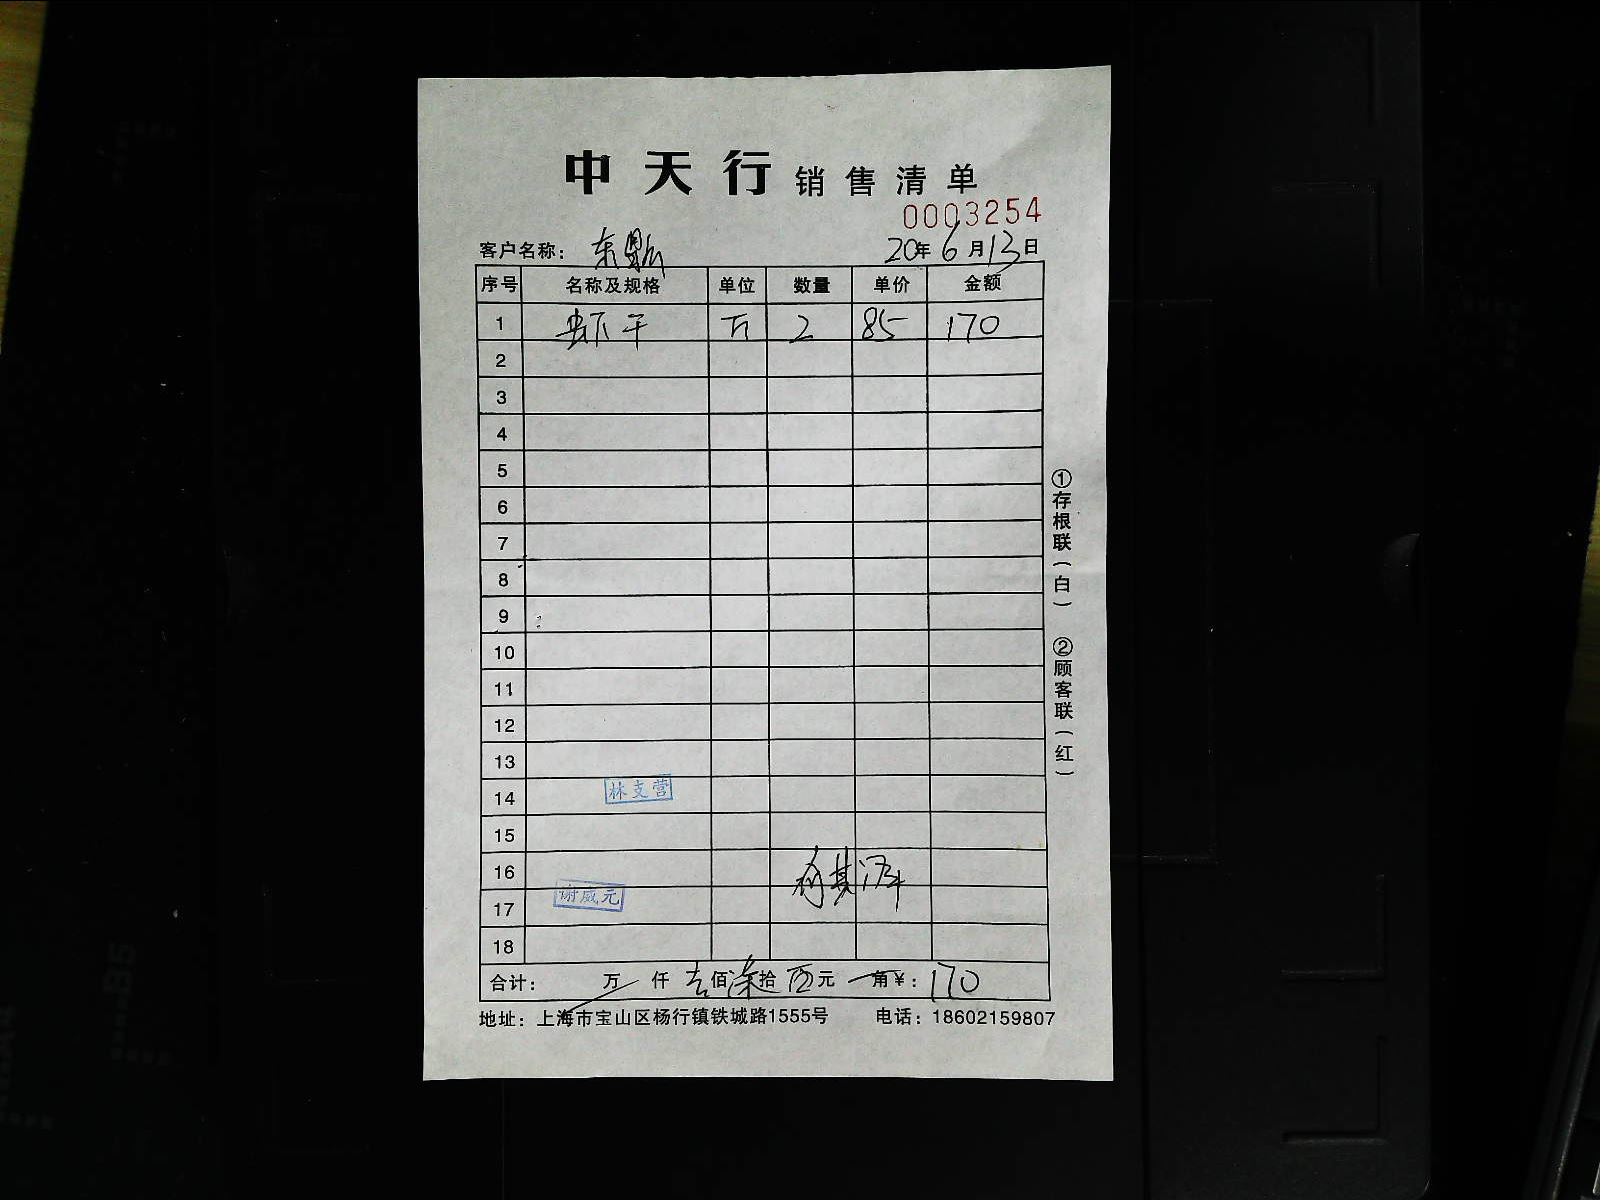 中天行销售清单
0003254
客户名称： 东
20年6月13日
序号 名称及规格 单位 数量 单价 金额
1 虾干 斤 2 85 170
2
3
4
5
6
7
8
9
10
11
12
13
14 林支营
15
16
17 谢威元
18
合计： 万 仟 壹佰柒拾 元 角￥：170
地址：上海市宝山区杨行镇铁城路1555号 电话：18602159807
①存根联（白） ②顾客联（红）
B5